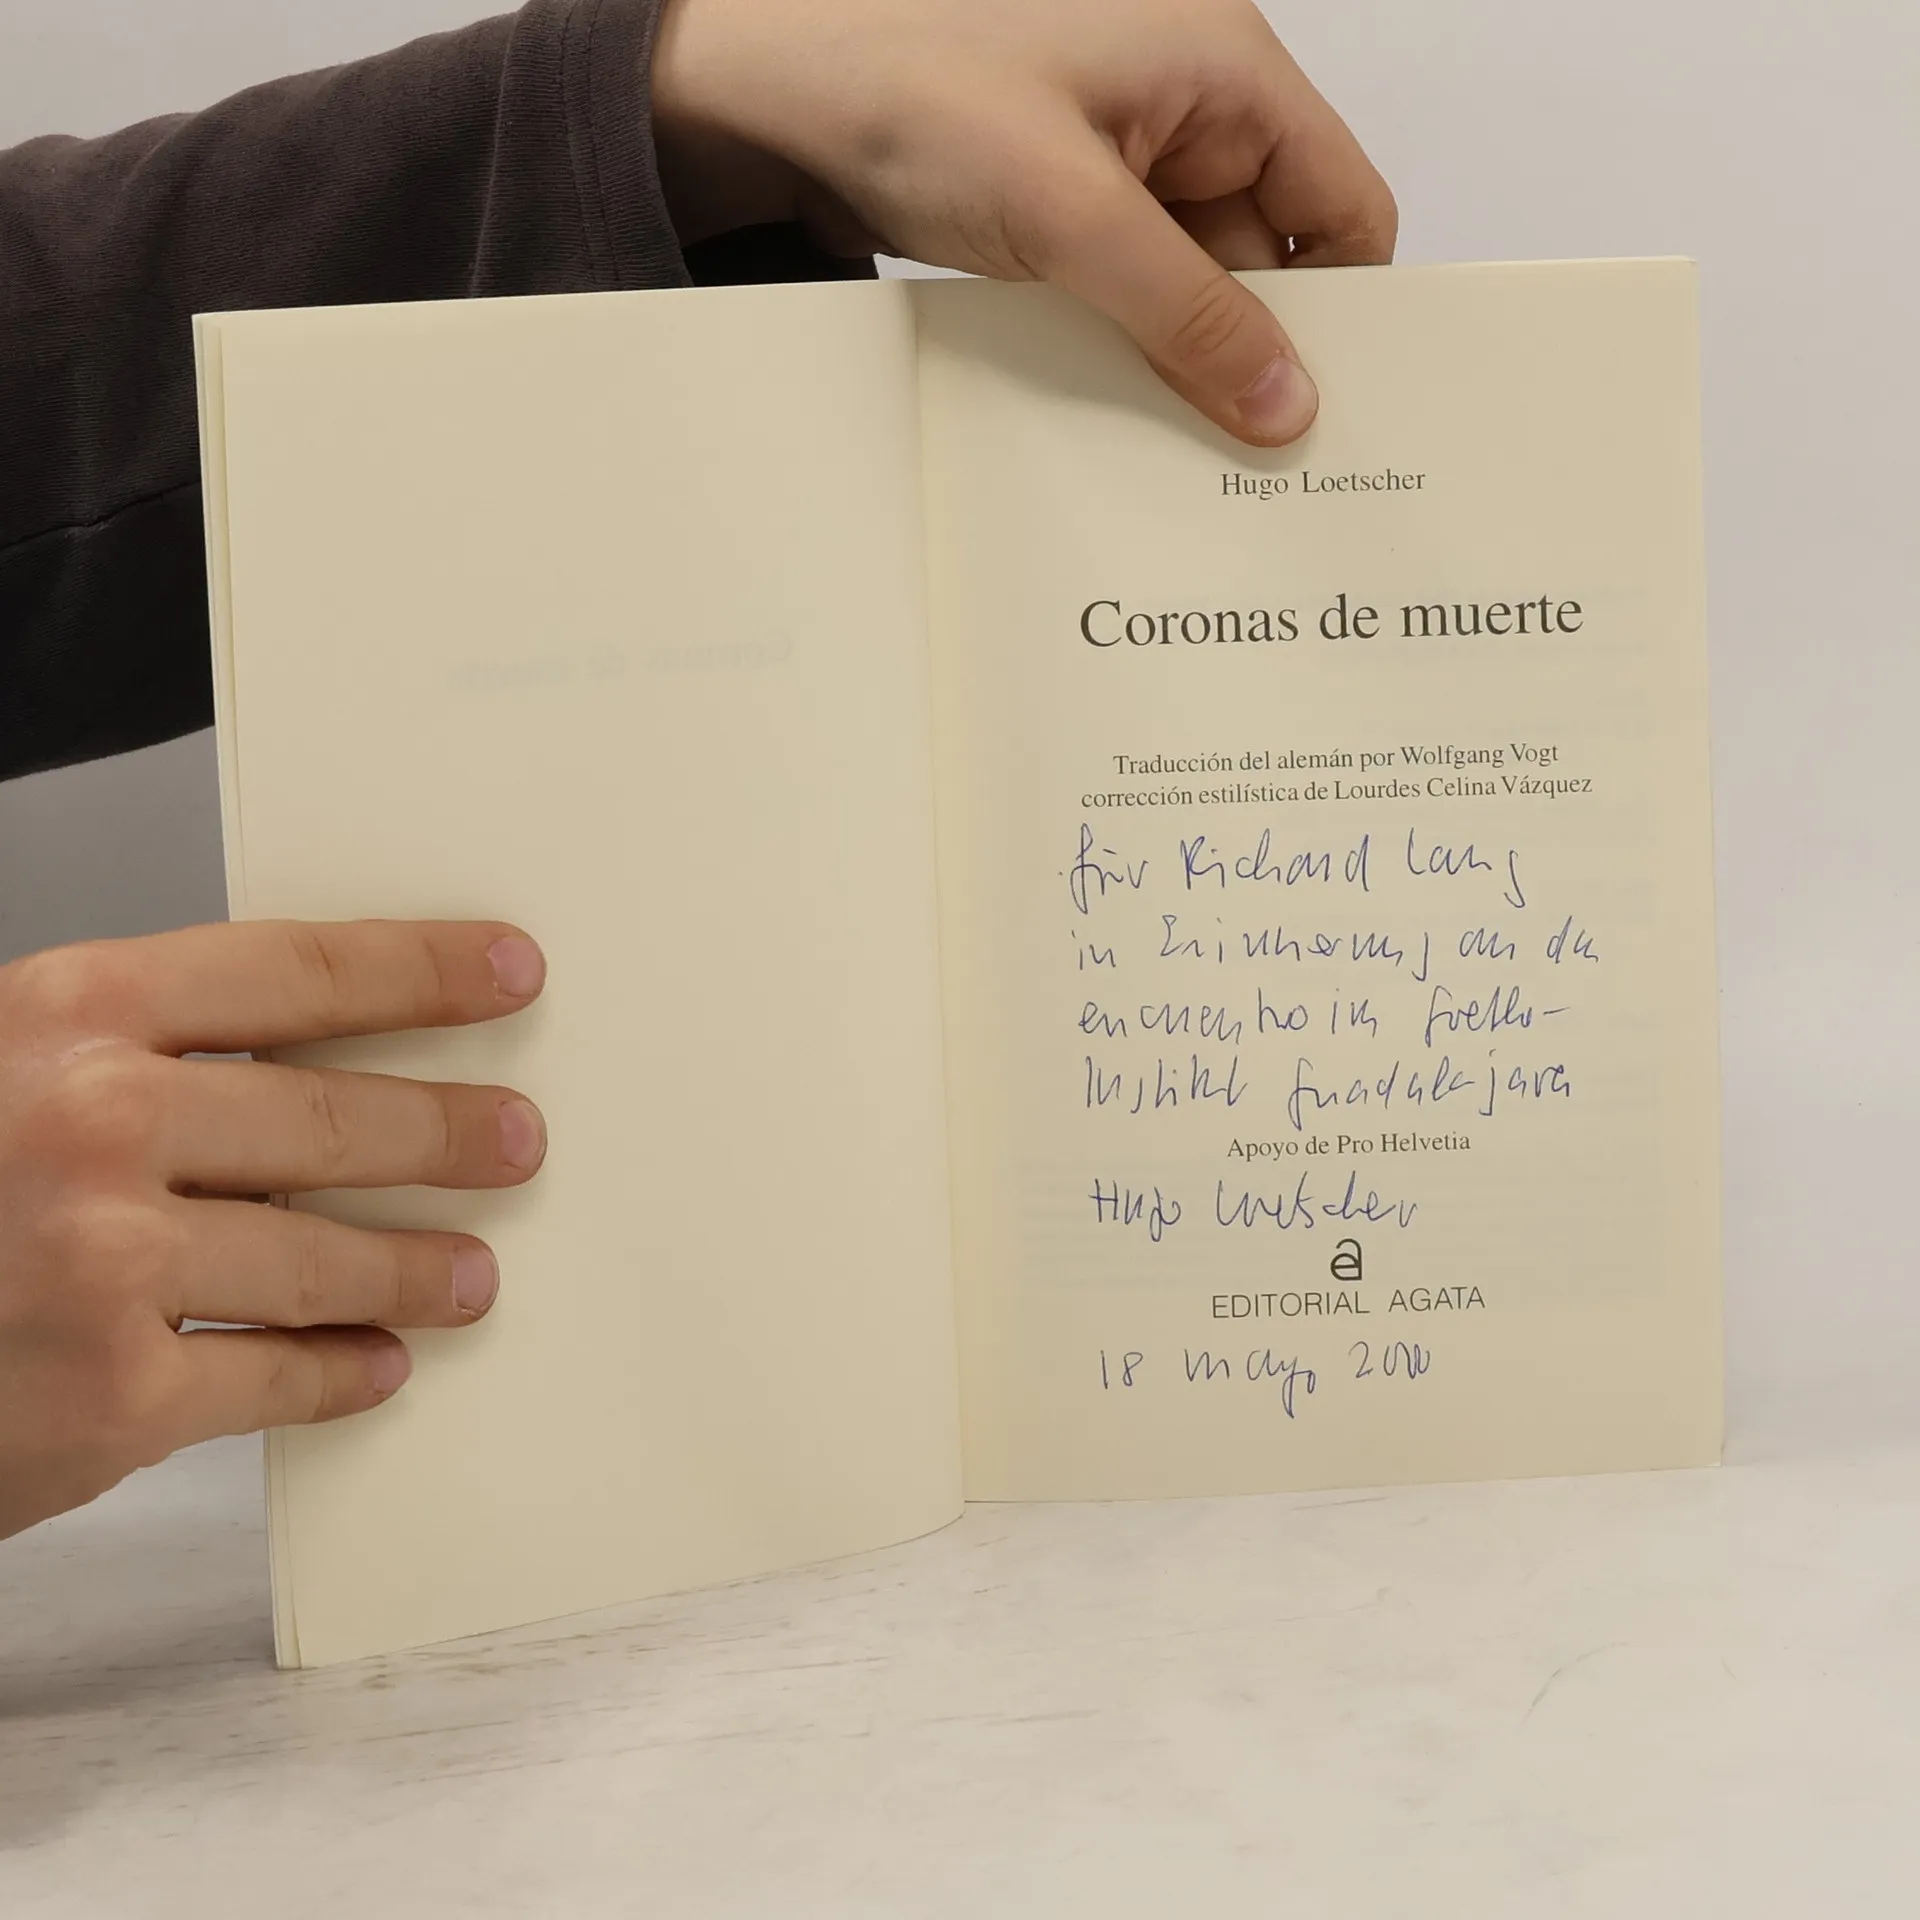 Hugo Loetscher
Coronas de muerte
Traducción del alemán por Wolfgang Vogt
corrección estilística de Lourdes Celina Vázquez
für Richard Lang
in Erinnerung an den
encuentro im Goethe-
Institut Guadalajara
Apoyo de Pro Helvetia
Hugo Loetscher
EDITORIAL AGATA
18 mayo 2000